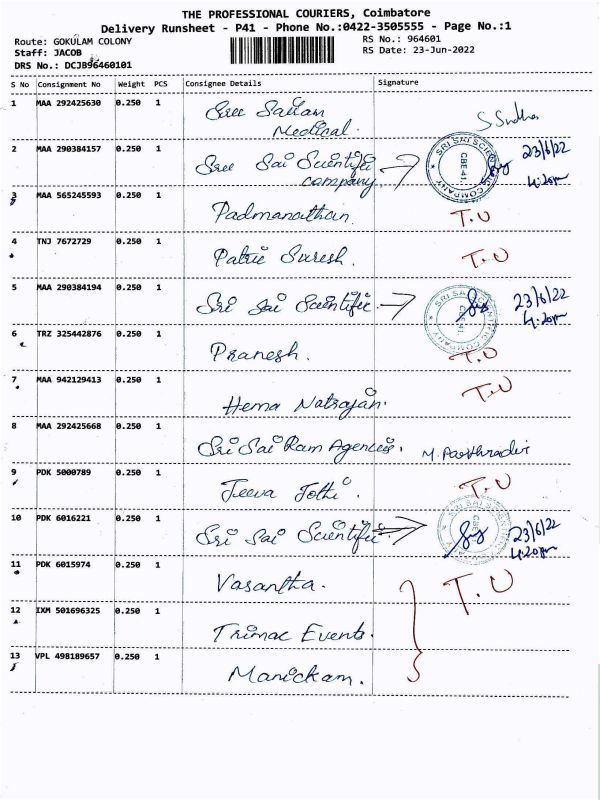 THE PROFESSIONAL COURIERS, Coimbatore
Delivery Runsheet - P41 - Phone No.:0422-3505555 - Page No.:1
Route: GOKULAM COLONY
RS No.: 964601
Staff: JACOB
RS Date: 23-Jun-2022
DRS No.: DCJB96460101
S No Consignment No Weight PCS Consignee Details Signature
1 MAA 292425630 0.250 1 Sree Sailam Medical. S Sudha
2 MAA 290384157 0.250 1 Sree Sai Scientific company. SRI SAI SCIENTIFIC COMPANY CBE-41. 23/6/22 4.20pm
3 MAA 565245593 0.250 1 Padmanathan T.U
4 TNJ 7672729 0.250 1 Patric Suresh. T.U
5 MAA 290384194 0.250 1 Sri Sai Scientific. SRI SAI SCIENTIFIC COMPANY CBE-41. 23/6/22 4.20pm
6 TRZ 325442876 0.250 1 Pranesh. T.U
7 MAA 942129413 0.250 1 Hema Natrajan. T.U
8 MAA 292425668 0.250 1 Sri Sai Ram Agencies.
9 PDK 5000789 0.250 1 Jeeva Jothi. T.U
10 PDK 6016221 0.250 1 Sri Sai Scientific. 23/6/22 4.20pm
11 PDK 6015974 0.250 1 Vasantha. T.U
12 IXM 501696325 0.250 1 Trimac Events.
13 VPL 498189657 0.250 1 Manickam.